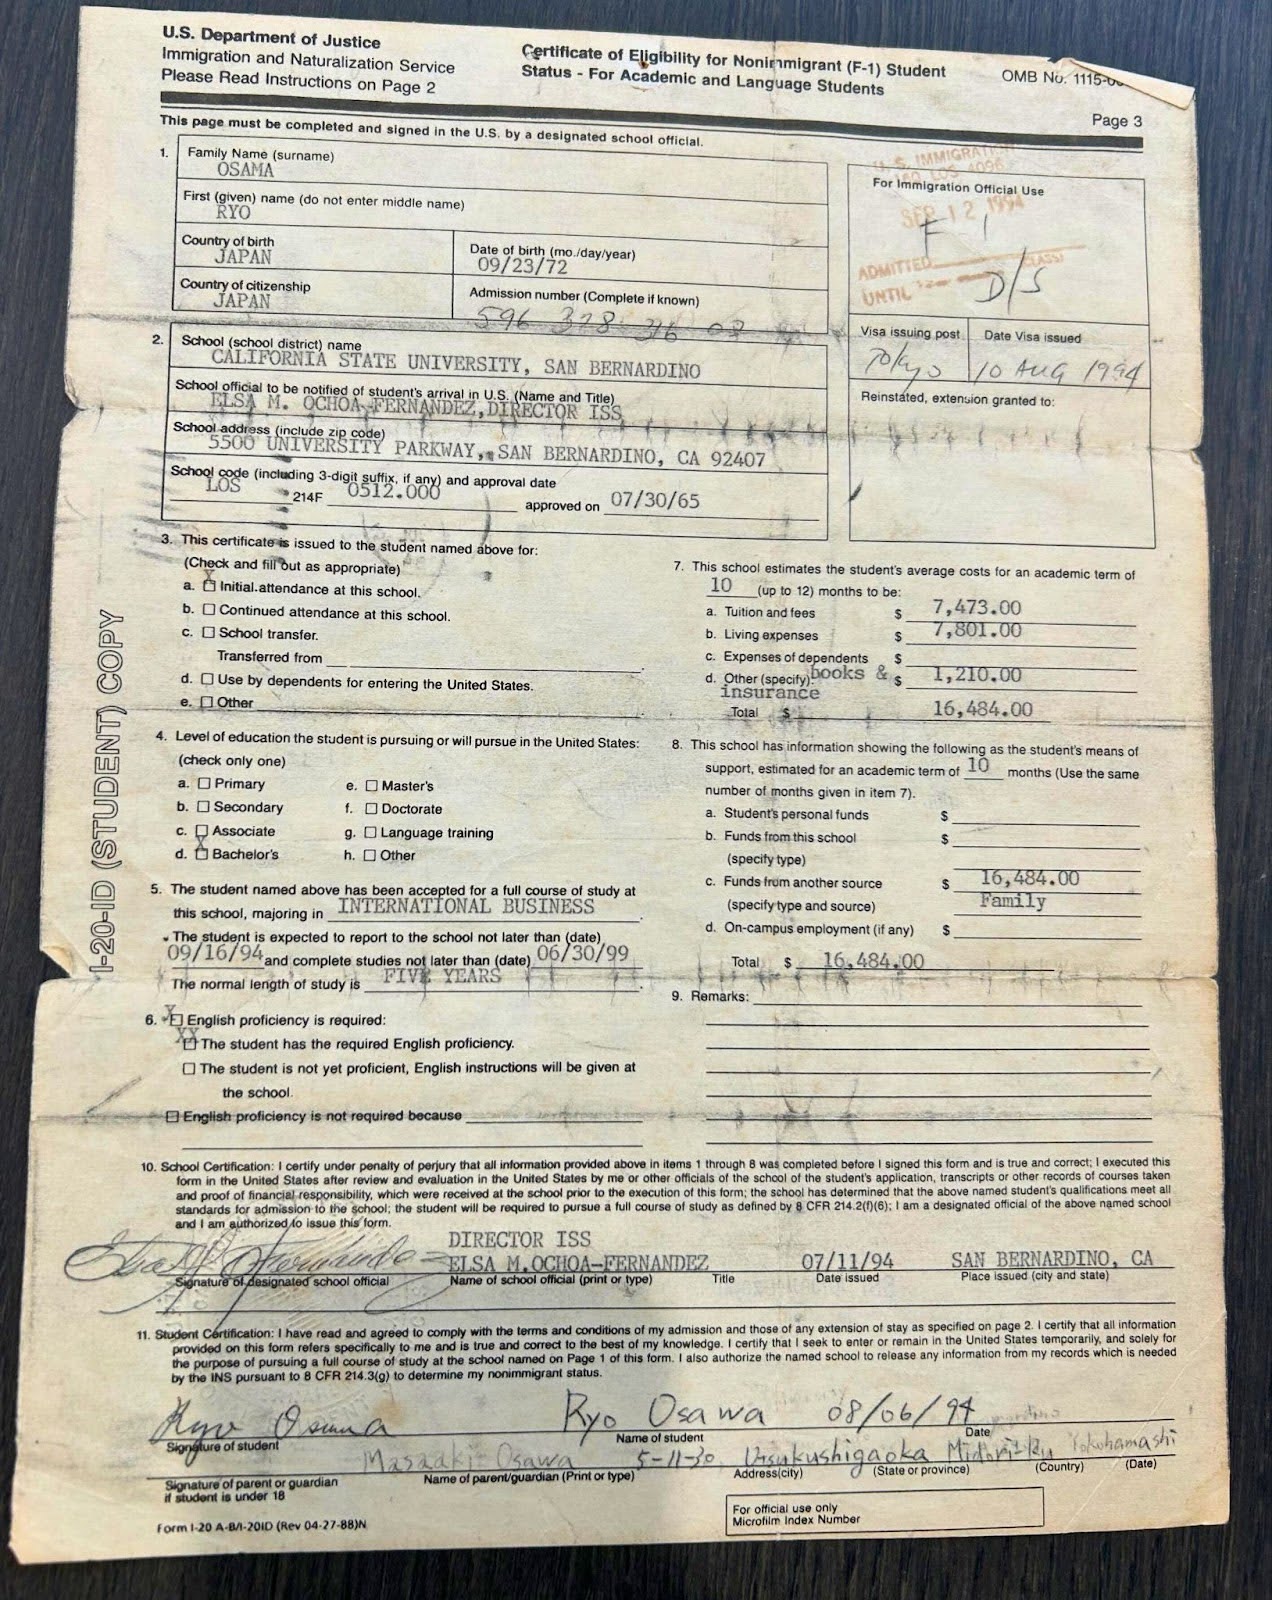 U.S. Department of Justice
Immigration and Naturalization Service
Please Read Instructions on Page 2
Certificate of Eligibility for Nonimmigrant (F-1) Student
Status - For Academic and Language Students
OMB No. 1115-
Page 3
This page must be completed and signed in the U.S. by a designated school official.
1. Family Name (surname)
OSAMA
First (given) name (do not enter middle name)
RYO
Country of birth
JAPAN
Date of birth (mo./day/year)
09/23/72
Country of citizenship
JAPAN
Admission number (Complete if known)
596 328 316 02
For Immigration Official Use
U.S. IMMIGRATION
160 LOS 4096
SEP 12 1994
F 1
ADMITTED (CLASS)
UNTIL D/S
Visa issuing post
Tokyo
Date Visa issued
10 AUG 1994
Reinstated, extension granted to:
2. School (school district) name
CALIFORNIA STATE UNIVERSITY, SAN BERNARDINO
School official to be notified of student's arrival in U.S. (Name and Title)
ELSA M. OCHOA-FERNANDEZ,DIRECTOR ISS
School address (include zip code)
5500 UNIVERSITY PARKWAY, SAN BERNARDINO, CA 92407
School code (including 3-digit suffix, if any) and approval date
LOS 214F 0512.000 approved on 07/30/65
3. This certificate is issued to the student named above for:
(Check and fill out as appropriate)
a. X Initial attendance at this school.
b. Continued attendance at this school.
c. School transfer.
Transferred from
d. Use by dependents for entering the United States.
e. Other
4. Level of education the student is pursuing or will pursue in the United States:
(check only one)
a. Primary e. Master's
b. Secondary f. Doctorate
c. Associate g. Language training
d. X Bachelor's h. Other
5. The student named above has been accepted for a full course of study at
this school, majoring in INTERNATIONAL BUSINESS.
The student is expected to report to the school not later than (date)
09/16/94 and complete studies not later than (date) 06/30/99
The normal length of study is FIVE YEARS.
6. X English proficiency is required:
XX The student has the required English proficiency.
The student is not yet proficient, English instructions will be given at
the school.
English proficiency is not required because
7. This school estimates the student's average costs for an academic term of
10 (up to 12) months to be:
a. Tuition and fees $ 7,473.00
b. Living expenses $ 7,801.00
c. Expenses of dependents $
d. Other (specify): books & $ 1,210.00
insurance
Total $ 16,484.00
8. This school has information showing the following as the student's means of
support, estimated for an academic term of 10 months (Use the same
number of months given in item 7).
a. Student's personal funds $
b. Funds from this school $
(specify type)
c. Funds from another source $ 16,484.00
(specify type and source) Family
d. On-campus employment (if any) $
Total $ 16,484.00
9. Remarks:
10. School Certification: I certify under penalty of perjury that all information provided above in items 1 through 8 was completed before I signed this form and is true and correct; I executed this
form in the United States after review and evaluation in the United States by me or other officials of the school of the student's application, transcripts or other records of courses taken
and proof of financial responsibility, which were received at the school prior to the execution of this form; the school has determined that the above named student's qualifications meet all
standards for admission to the school; the student will be required to pursue a full course of study as defined by 8 CFR 214.2(f)(6); I am a designated official of the above named school
and I am authorized to issue this form.
DIRECTOR ISS
ELSA M.OCHOA-FERNANDEZ 07/11/94 SAN BERNARDINO, CA
Signature of designated school official Name of school official (print or type) Title Date issued Place issued (city and state)
11. Student Certification: I have read and agreed to comply with the terms and conditions of my admission and those of any extension of stay as specified on page 2. I certify that all information
provided on this form refers specifically to me and is true and correct to the best of my knowledge. I certify that I seek to enter or remain in the United States temporarily, and solely for
the purpose of pursuing a full course of study at the school named on Page 1 of this form. I also authorize the named school to release any information from my records which is needed
by the INS pursuant to 8 CFR 214.3(g) to determine my nonimmigrant status.
Ryo Osawa Ryo Osawa 08/06/94
Signature of student Name of student Date
Masaaki Osawa 5-11-30 Utsukushigaoka Midori-ku Yokohamashi
Signature of parent or guardian Name of parent/guardian (Print or type) Address(city) (State or province) (Country) (Date)
if student is under 18
Form I-20 A-B/I-20ID (Rev 04-27-88)N
For official use only
Microfilm Index Number
I-20-ID (STUDENT) COPY